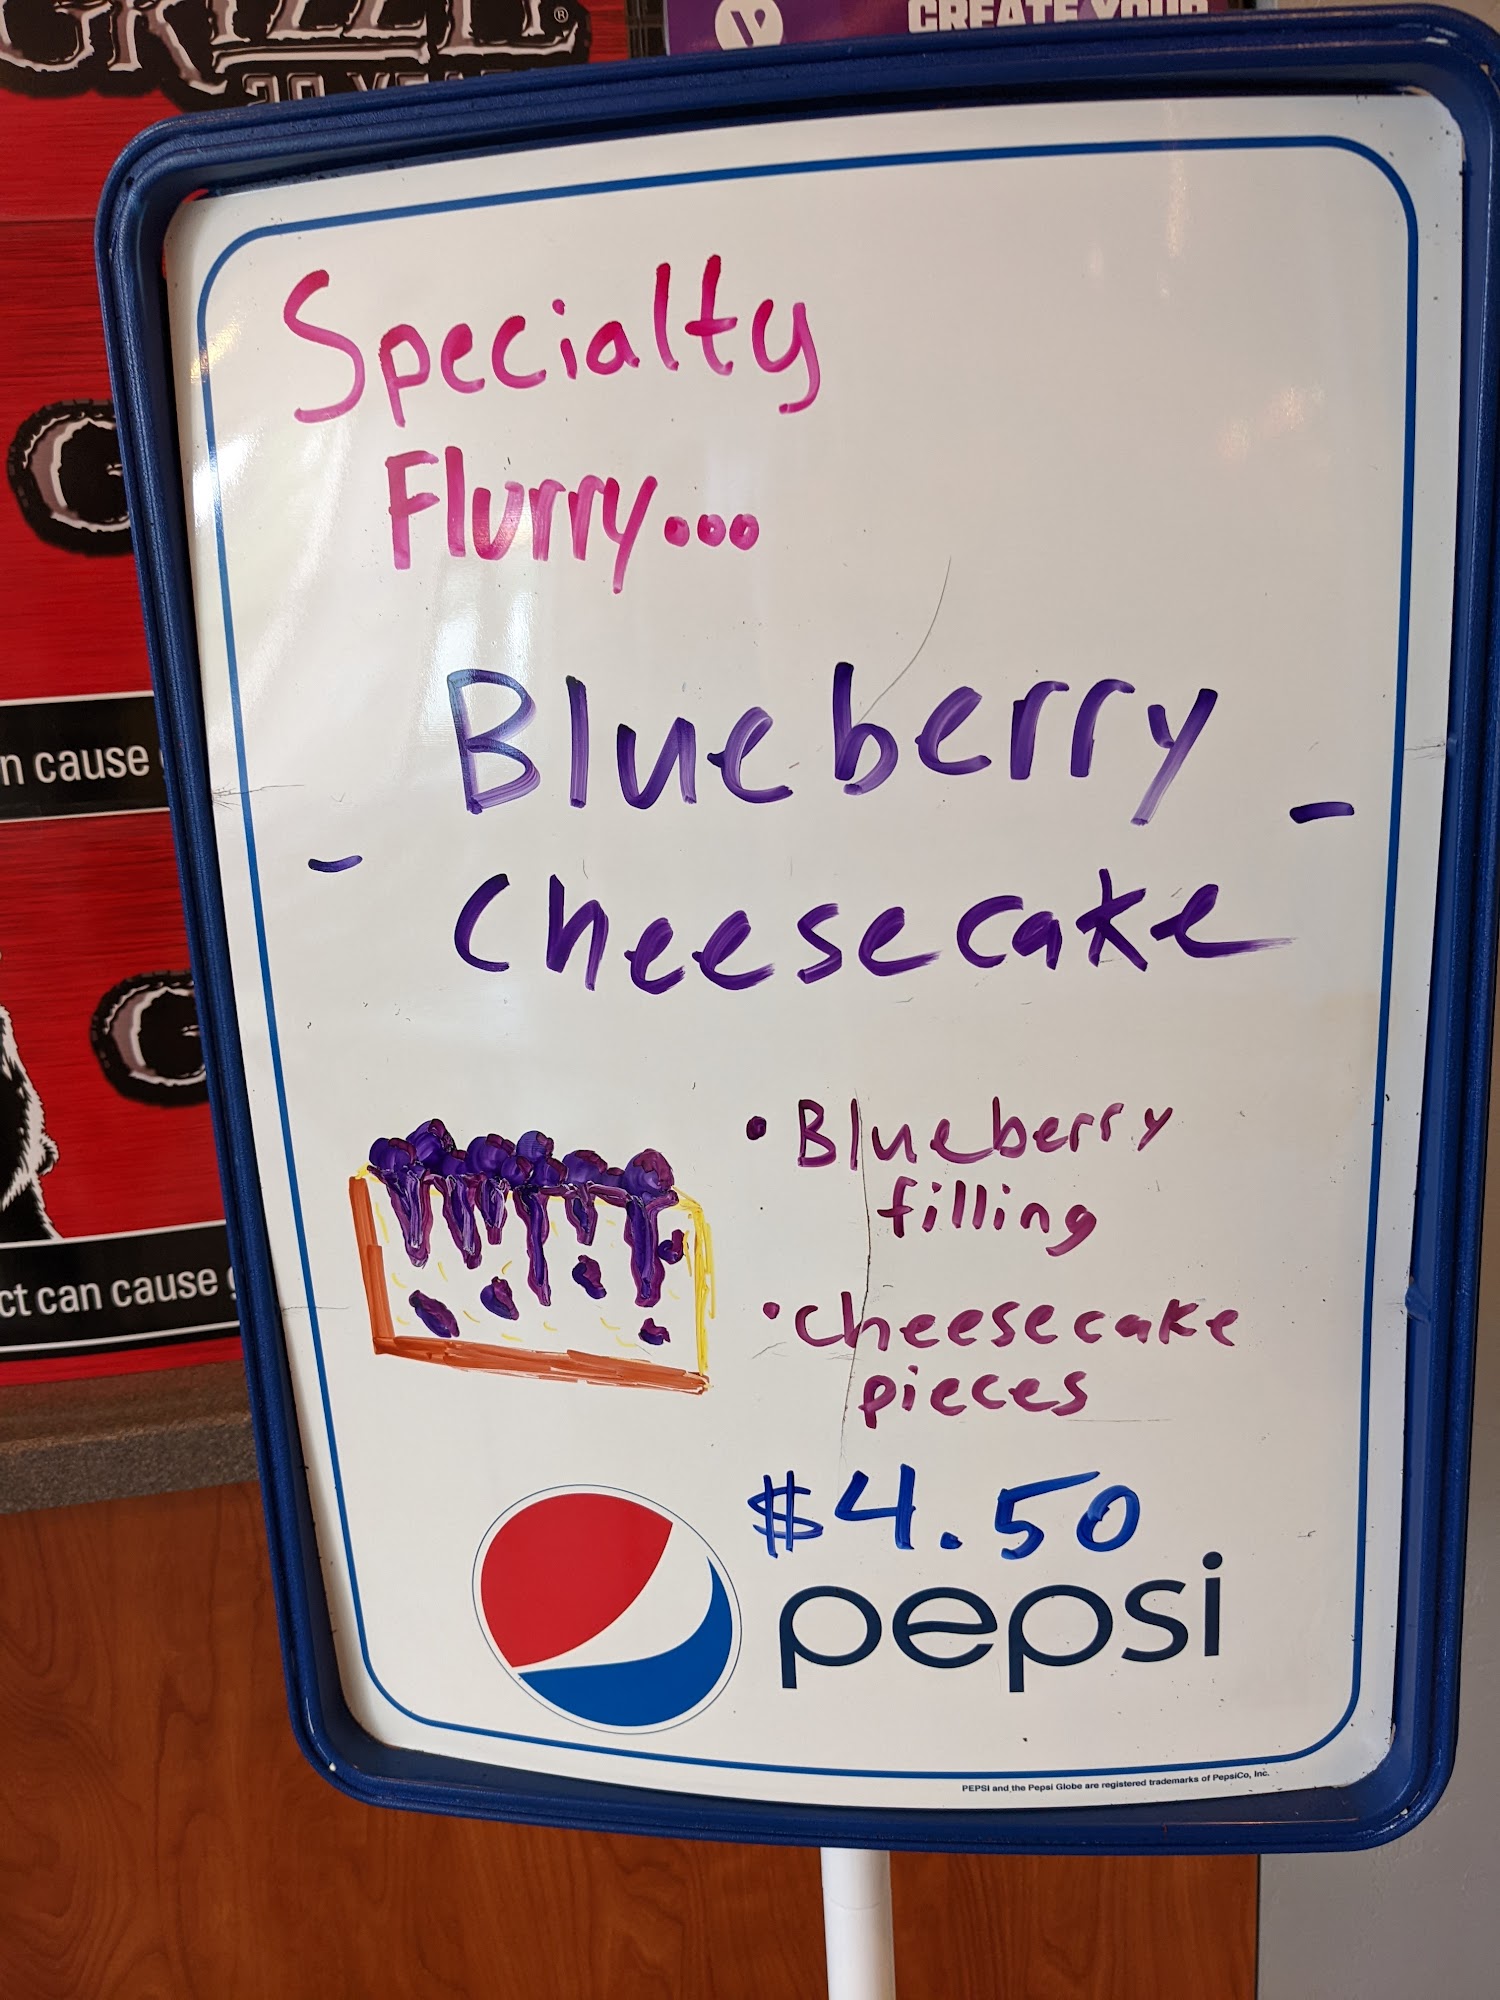 CREATE YOUR
n cause
ct can cause
Specialty
Flurry...
Blueberry
- Cheesecake -
• Blueberry
filling
• Cheesecake
pieces
$4.50
pepsi
PEPSI and the Pepsi Globe are registered trademarks of PepsiCo, Inc.